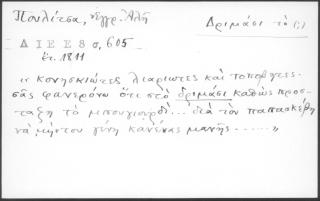 Πουλίτσα, Ἔγγρ. Ἀλῆ Δριμάσι τὸ (;)
ΔΙΕΕ 8 σ, 605
ἔτ. 1811
"κονησκιώτες λιαριωτες καὶ τοπολητες
σᾶς φανερόνω ὅτι στὸ δριμάσι καθὼς προσ-
ταξη τὸ μπουγιουρδὶ... διὰ τὸν παπασκέρη
νὰ μήντου γίνη κανένας μανῆς ......"